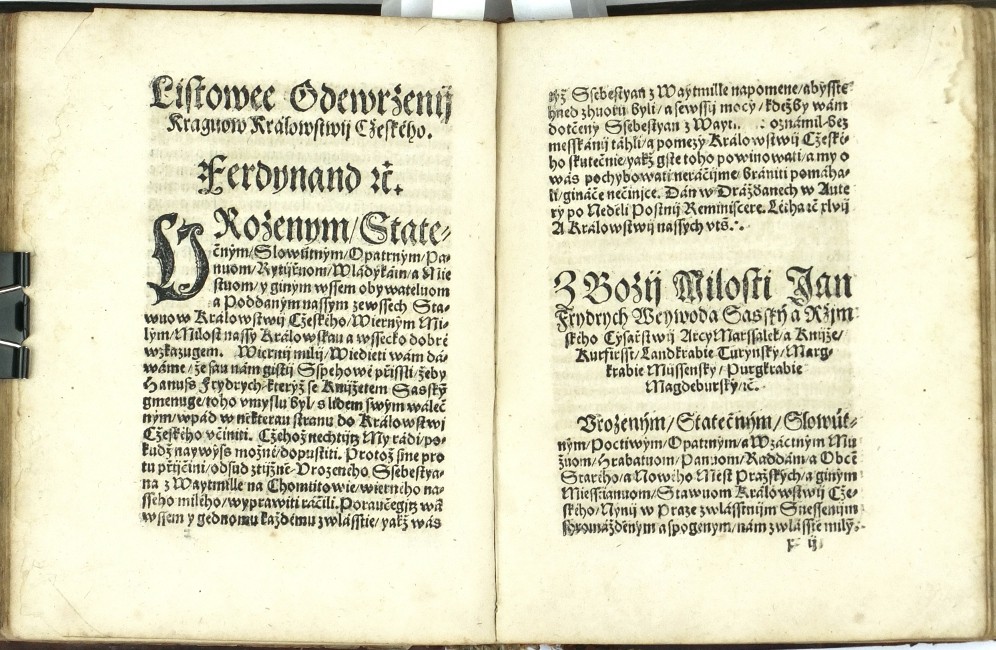 Listowee Odewrženij
Kraguow Králowstwij Cžeského.
Ferdynand ꝛč.
VRoženym/ State-
čným/ Slowútným/ Opatrným/ Pa-
nuom/ Rytijřuom/ Wládykám/ a Mie
stuom/ y giným wssem obywateluom
a Poddaným nassým ze wssech Sta-
wuow Králowstwij Cžeského/ Wierným Mi-
lým/ Milost nassy Králowskau a wssecko dobré
wzkazugem. Wiernij milij/ Wiedieti wám dá-
wáme/ že sau nám gistij Sspehowé přissli/ žeby
Hanuss Frydrych/ kterýž se Knijžetem Saským
gmenuge/ toho vmyslu byl/ s lidem swým waleč
ným/ wpád w niekterau stranu do Králowstwij
Cžeského včiniti. Cžehož nechtijtz My rádi/ po-
kudž naywýss možné/ dopustiti. Protož sme pro
tu přijčini/ odsud ztijžně Vrozeného Ssebestya-
na z Waytmille na Chomutowie/ wierného na-
sseho milého/ wyprawiti ráčili. Poraučegijtz wá
wssem y gednomu každému zwlásstie/ yakž wás
týž Ssebestyan z Waytmille napomene/ abysste
hned zhuoru byli/ a sewssij mocý/ kdežby wám
dotčený Ssebestyan z Wayt. oznámil/ bez
messkánij táhli/ a pomezý Králowstwij Cžeské-
ho skutečnie/ yakž gste toho powinowati/ a my o
wás pochybowati neráčijme/ brániti pomáha-
li/ gináče nečinijce. Dán w Drážďanech w Aute
rý po Neděli Postnij Reminiscere. Létha ꝛč xlvij
A Králowstwij nassych vts̃.
Z Božij Milosti Jan
Frydrych Weywoda Saský a Rzijm
ského Cýsařstwij Arcy Marssalek/ a Knijže/
Kurfirsst/ Landkrabie Turynský/ Marg-
krabie Missenský/ Purgkrabie
Magdeburský/ ꝛč.
Vroženým/ Statečným/ Slowút-
ným/ Poctiwým/ Opatrným/ a Wzáctným Mu
žuom/ Hrabatuom/ Panuom/ Raddám/ a Obcē
Starého/ a Nowého Mest Pražských/ a giným
Miesstianuom/ Stawuom Králowstwij Cže-
ského/ Nynij w Praze zwlásstnijm Snessenijm
shromážděným a spogenym/ nám zwlásstie milý-
ij